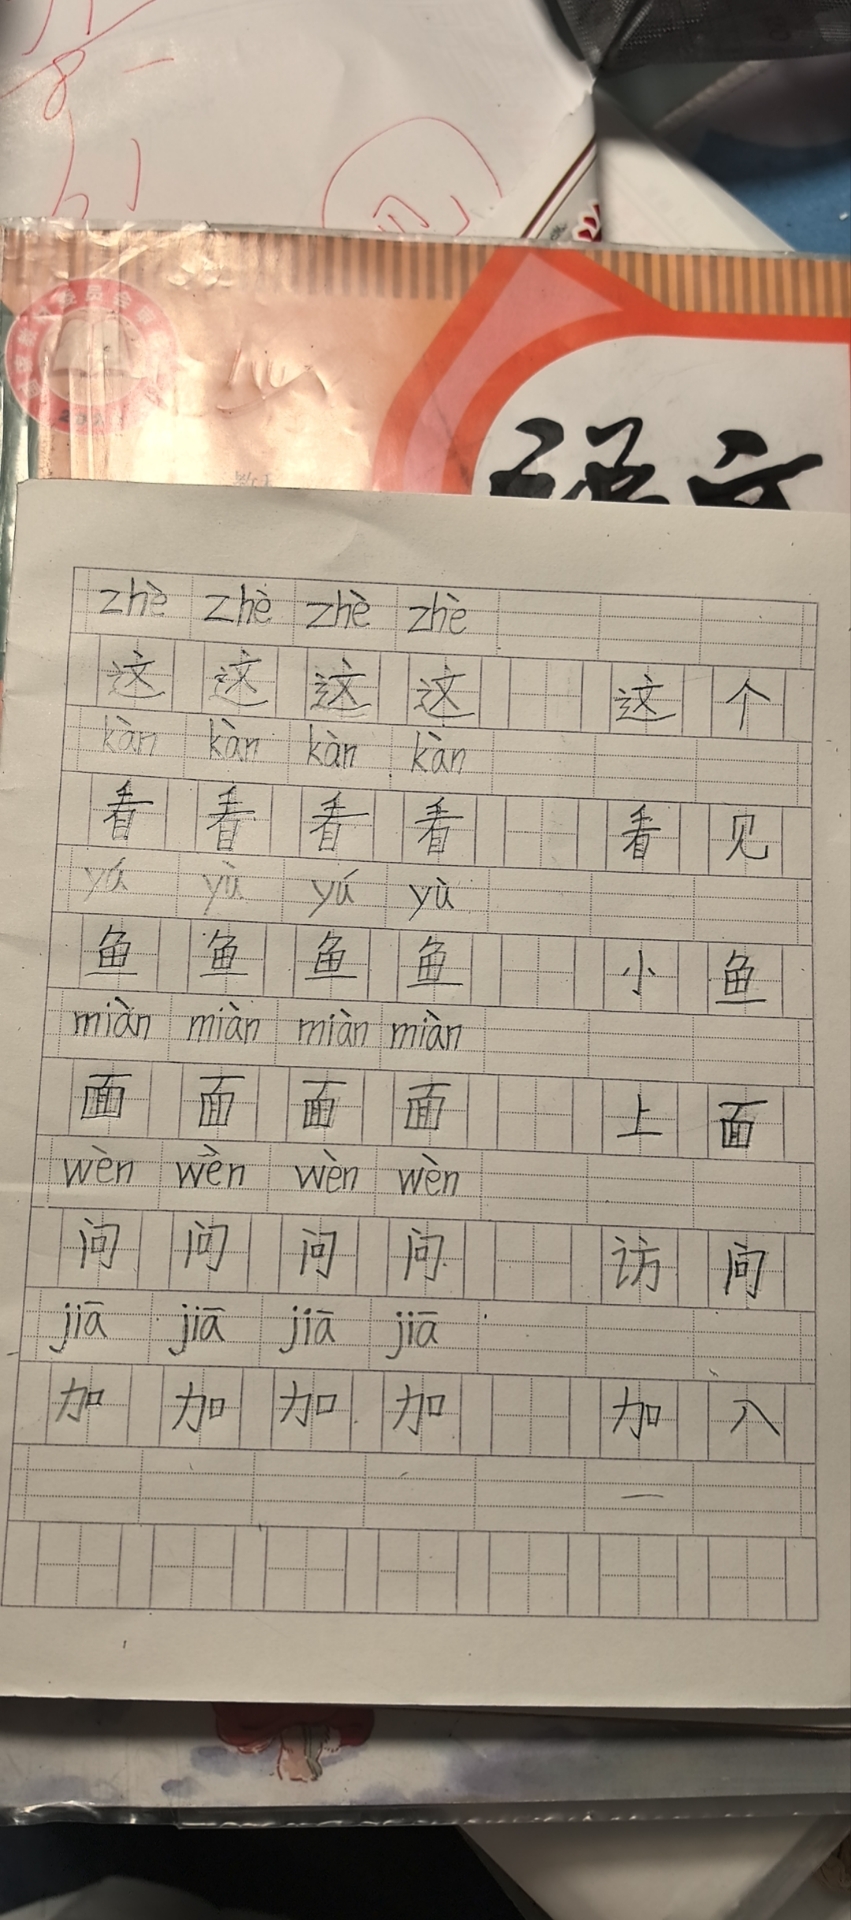 语文
zhè zhè zhè zhè
这 这 这 这 这 个
kàn kàn kàn kàn
看 看 看 看 看 见
yú yù yú yù
鱼 鱼 鱼 鱼 小 鱼
miàn miàn miàn miàn
面 面 面 面 上 面
wèn wèn wèn wèn
问 问 问 问 访 问
jiā jiā jiā jiā
加 加 加 加 加 入